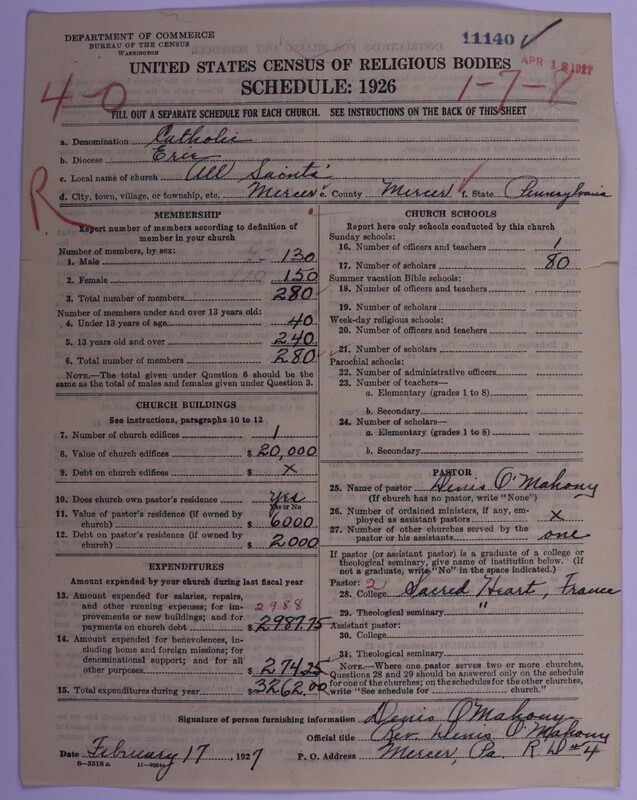 DEPARTMENT OF COMMERCE
BUREAU OF THE CENSUS
WASHINGTON
11140 ✓
APR 1927
UNITED STATES CENSUS OF RELIGIOUS BODIES
SCHEDULE: 1926
4-0
1-7-8
FILL OUT A SEPARATE SCHEDULE FOR EACH CHURCH. SEE INSTRUCTIONS ON THE BACK OF THIS SHEET
a. Denomination Catholic
b. Diocese Erie
c. Local name of church All Saints'
d. City, town, village, or township, etc. Mercer e. County Mercer f. State Pennsylvania
R
MEMBERSHIP
Report number of members according to definition of
member in your church
Number of members, by sex:
1. Male 130
2. Female 150
3. Total number of members 280
Number of members under and over 13 years old:
4. Under 13 years of age 40
5. 13 years old and over 240
6. Total number of members 280
NOTE.—The total given under Question 6 should be
same as the total of males and females given under Question 3.
CHURCH BUILDINGS
See instructions, paragraphs 10 to 12
7. Number of church edifices 1
8. Value of church edifices $ 20,000
9. Debt on church edifices $ X
10. Does church own pastor's residence yes
Yes or No
11. Value of pastor's residence (if owned by
church) $ 6000
12. Debt on pastor's residence (if owned by
church) $ 2000
EXPENDITURES
Amount expended by your church during last fiscal year
13. Amount expended for salaries, repairs,
and other running expenses; for im- 2988
provements or new buildings; and for
payments on church debt $ 2987.75
14. Amount expended for benevolences, in-
cluding home and foreign missions; for
denominational support; and for all
other purposes $ 274.25
15. Total expenditures during year $ 3262.00
CHURCH SCHOOLS
Report here only schools conducted by this church
Sunday schools:
16. Number of officers and teachers 1
17. Number of scholars 80
Summer vacation Bible schools:
18. Number of officers and teachers
19. Number of scholars
Week-day religious schools:
20. Number of officers and teachers
21. Number of scholars
Parochial schools:
22. Number of administrative officers
23. Number of teachers—
a. Elementary (grades 1 to 8)
b. Secondary
24. Number of scholars—
a. Elementary (grades 1 to 8)
b. Secondary
PASTOR
25. Name of pastor Denis O'Mahony
(If church has no pastor, write "None")
26. Number of ordained ministers, if any, em-
ployed as assistant pastors X
27. Number of other churches served by the
pastor or his assistants one
If pastor (or assistant pastor) is a graduate of a college or
theological seminary, give name of institution below. (If
not a graduate, write "No" in the space indicated.)
Pastor: 2
28. College Sacred Heart, France
29. Theological seminary "
Assistant pastor:
30. College
31. Theological seminary
NOTE.—Where one pastor serves two or more churches,
Questions 28 and 29 should be answered only on the schedule
for one of the churches; on the schedules for the other churches,
write "See schedule for church."
Signature of person furnishing information Denis O'Mahony
Official title Rev. Denis O'Mahony
Date February 17, 1927 P. O. Address Mercer, Pa. R D #4